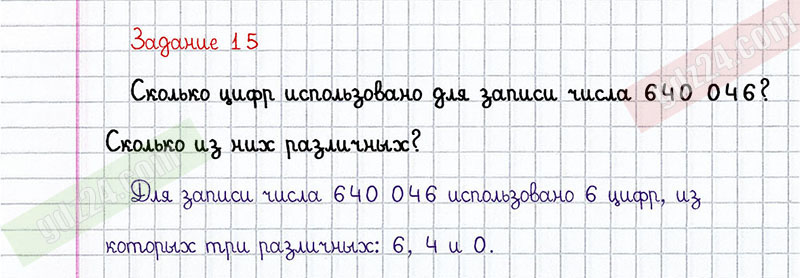 Задание 15
gdz24.com
Сколько цифр использовано для записи числа 640 046?
Сколько из них различных?
gdz24.com
Для записи числа 640 046 использовано 6 цифр, из
которых три различных: 6, 4 и 0.